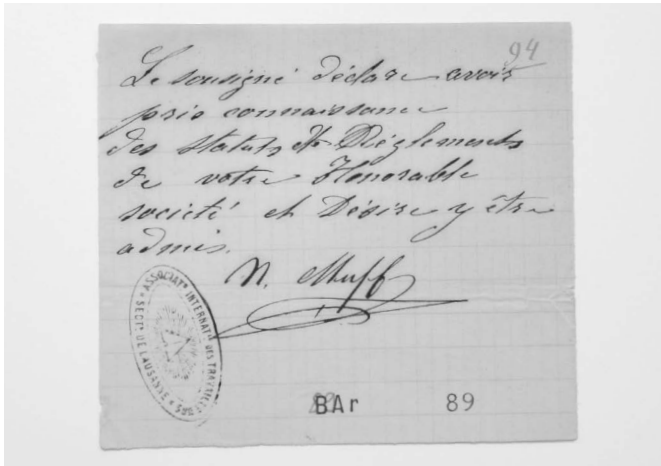 94
Le sousigné déclare avoir
pris connaissance
des statuts & Règlements
de votre Honorable
société et Désire y être
admis.
N. Muff
ASSOCIATN INTERNATLE DES TRAVAILLEURS
SECTN DE LAUSANNE
BAr 89